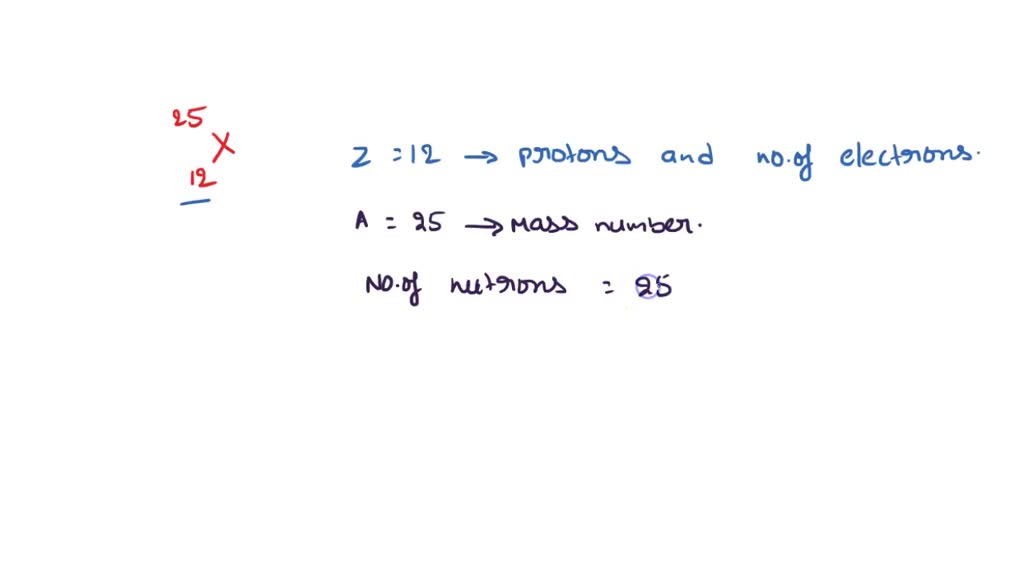 25
X
12
Z = 12 → protons and no.of electrons.
A = 25 → Mass number.
No.of nutrons = 25